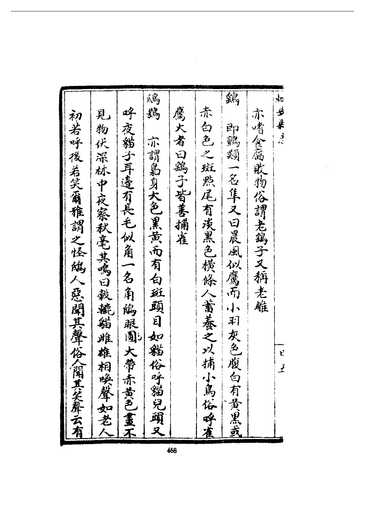 亦嗜食腐敗物俗謂老鷂子又稱老雕
鷂 即鷂類一名隼又曰晨風似鷹而小羽灰色腹白有黃黑或
赤白色之斑點尾有淡黑色橫條人畜養之以捕小鳥俗呼雀
鷹大者曰鷂子皆善捕雀
鴟鵂 亦謂梟身大色黑黃而有白斑頭目如貓俗呼貓兒頭又
呼夜貓子耳邊有長毛似角一名角鴟眼圓大帶赤黃色晝不
見物伏深林中夜察秋毫其鳴曰轂轆貓雌雄相喚聲如老人
初若呼後若笑爾雅謂之怪鴟人惡聞其聲俗人聞其笑聲云有
四五
468